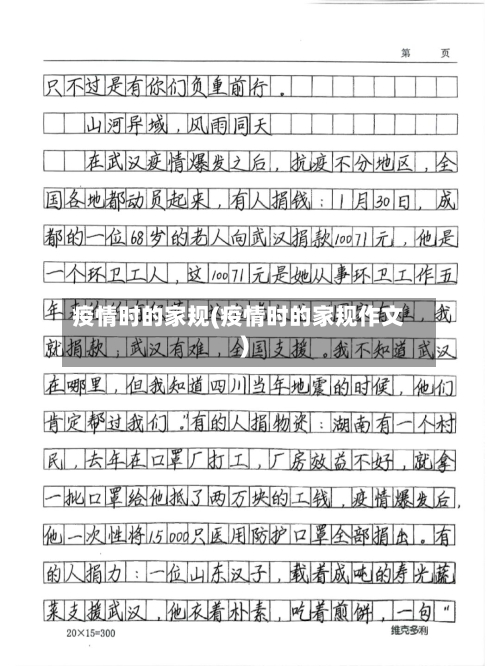 第 页
只不过是有你们负重前行。
山河异域，风雨同天
在武汉疫情爆发之后，抗疫不分地区，全
国各地都动员起来，有人捐钱：1月30日，成
都的一位68岁的老人向武汉捐款10071元，他是
一个环卫工人，这10071元是她从事环卫工作五
年 难，我
疫情时的家规(疫情时的家规作文
)
就捐款；武汉有难，全国支援。我不知道武汉
在哪里，但我知道四川当年地震的时候，他们
肯定帮过我们。”有的人捐物资：湖南有一个村
民，去年在口罩厂打工，厂房效益不好，就拿
一批口罩给他抵了两万块的工钱，疫情爆发后，
他一次性将15000只医用防护口罩全部捐出。有
的人捐力：一位山东汉子，载着成吨的寿光蔬
菜支援武汉，他衣着朴素，吃着煎饼，一句“
20×15=300 维克多利